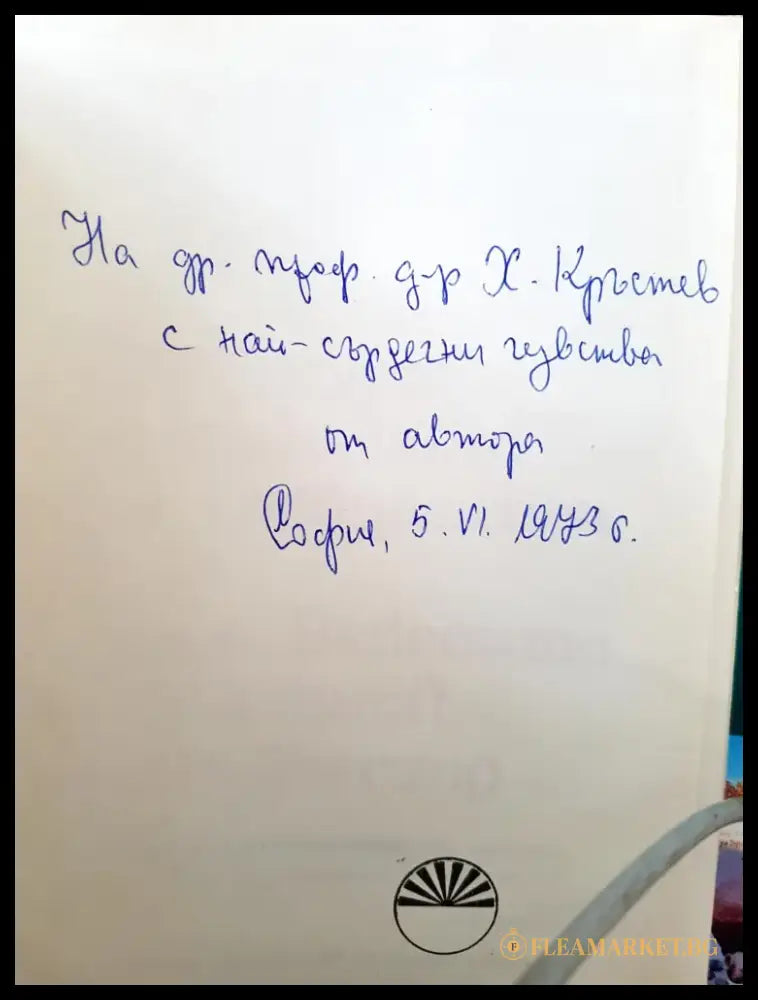 На др. проф. д-р Х. Кръстев
с най-сърдечни чувства
от автора
София, 5. VI. 1973 г.
FLEAMARKET.BG